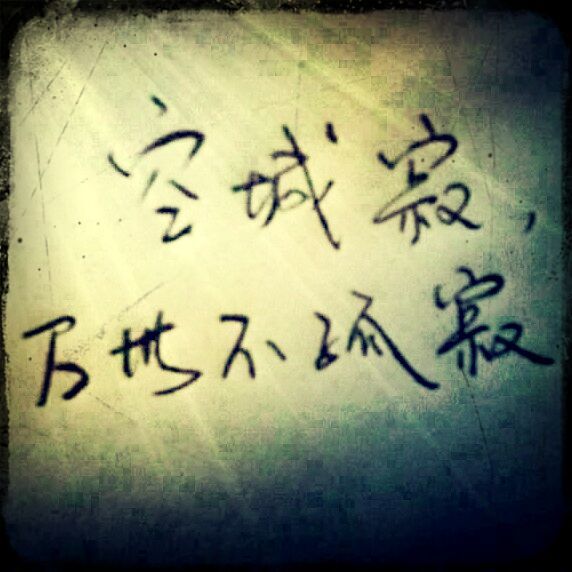 空城寂，
万世不孤寂